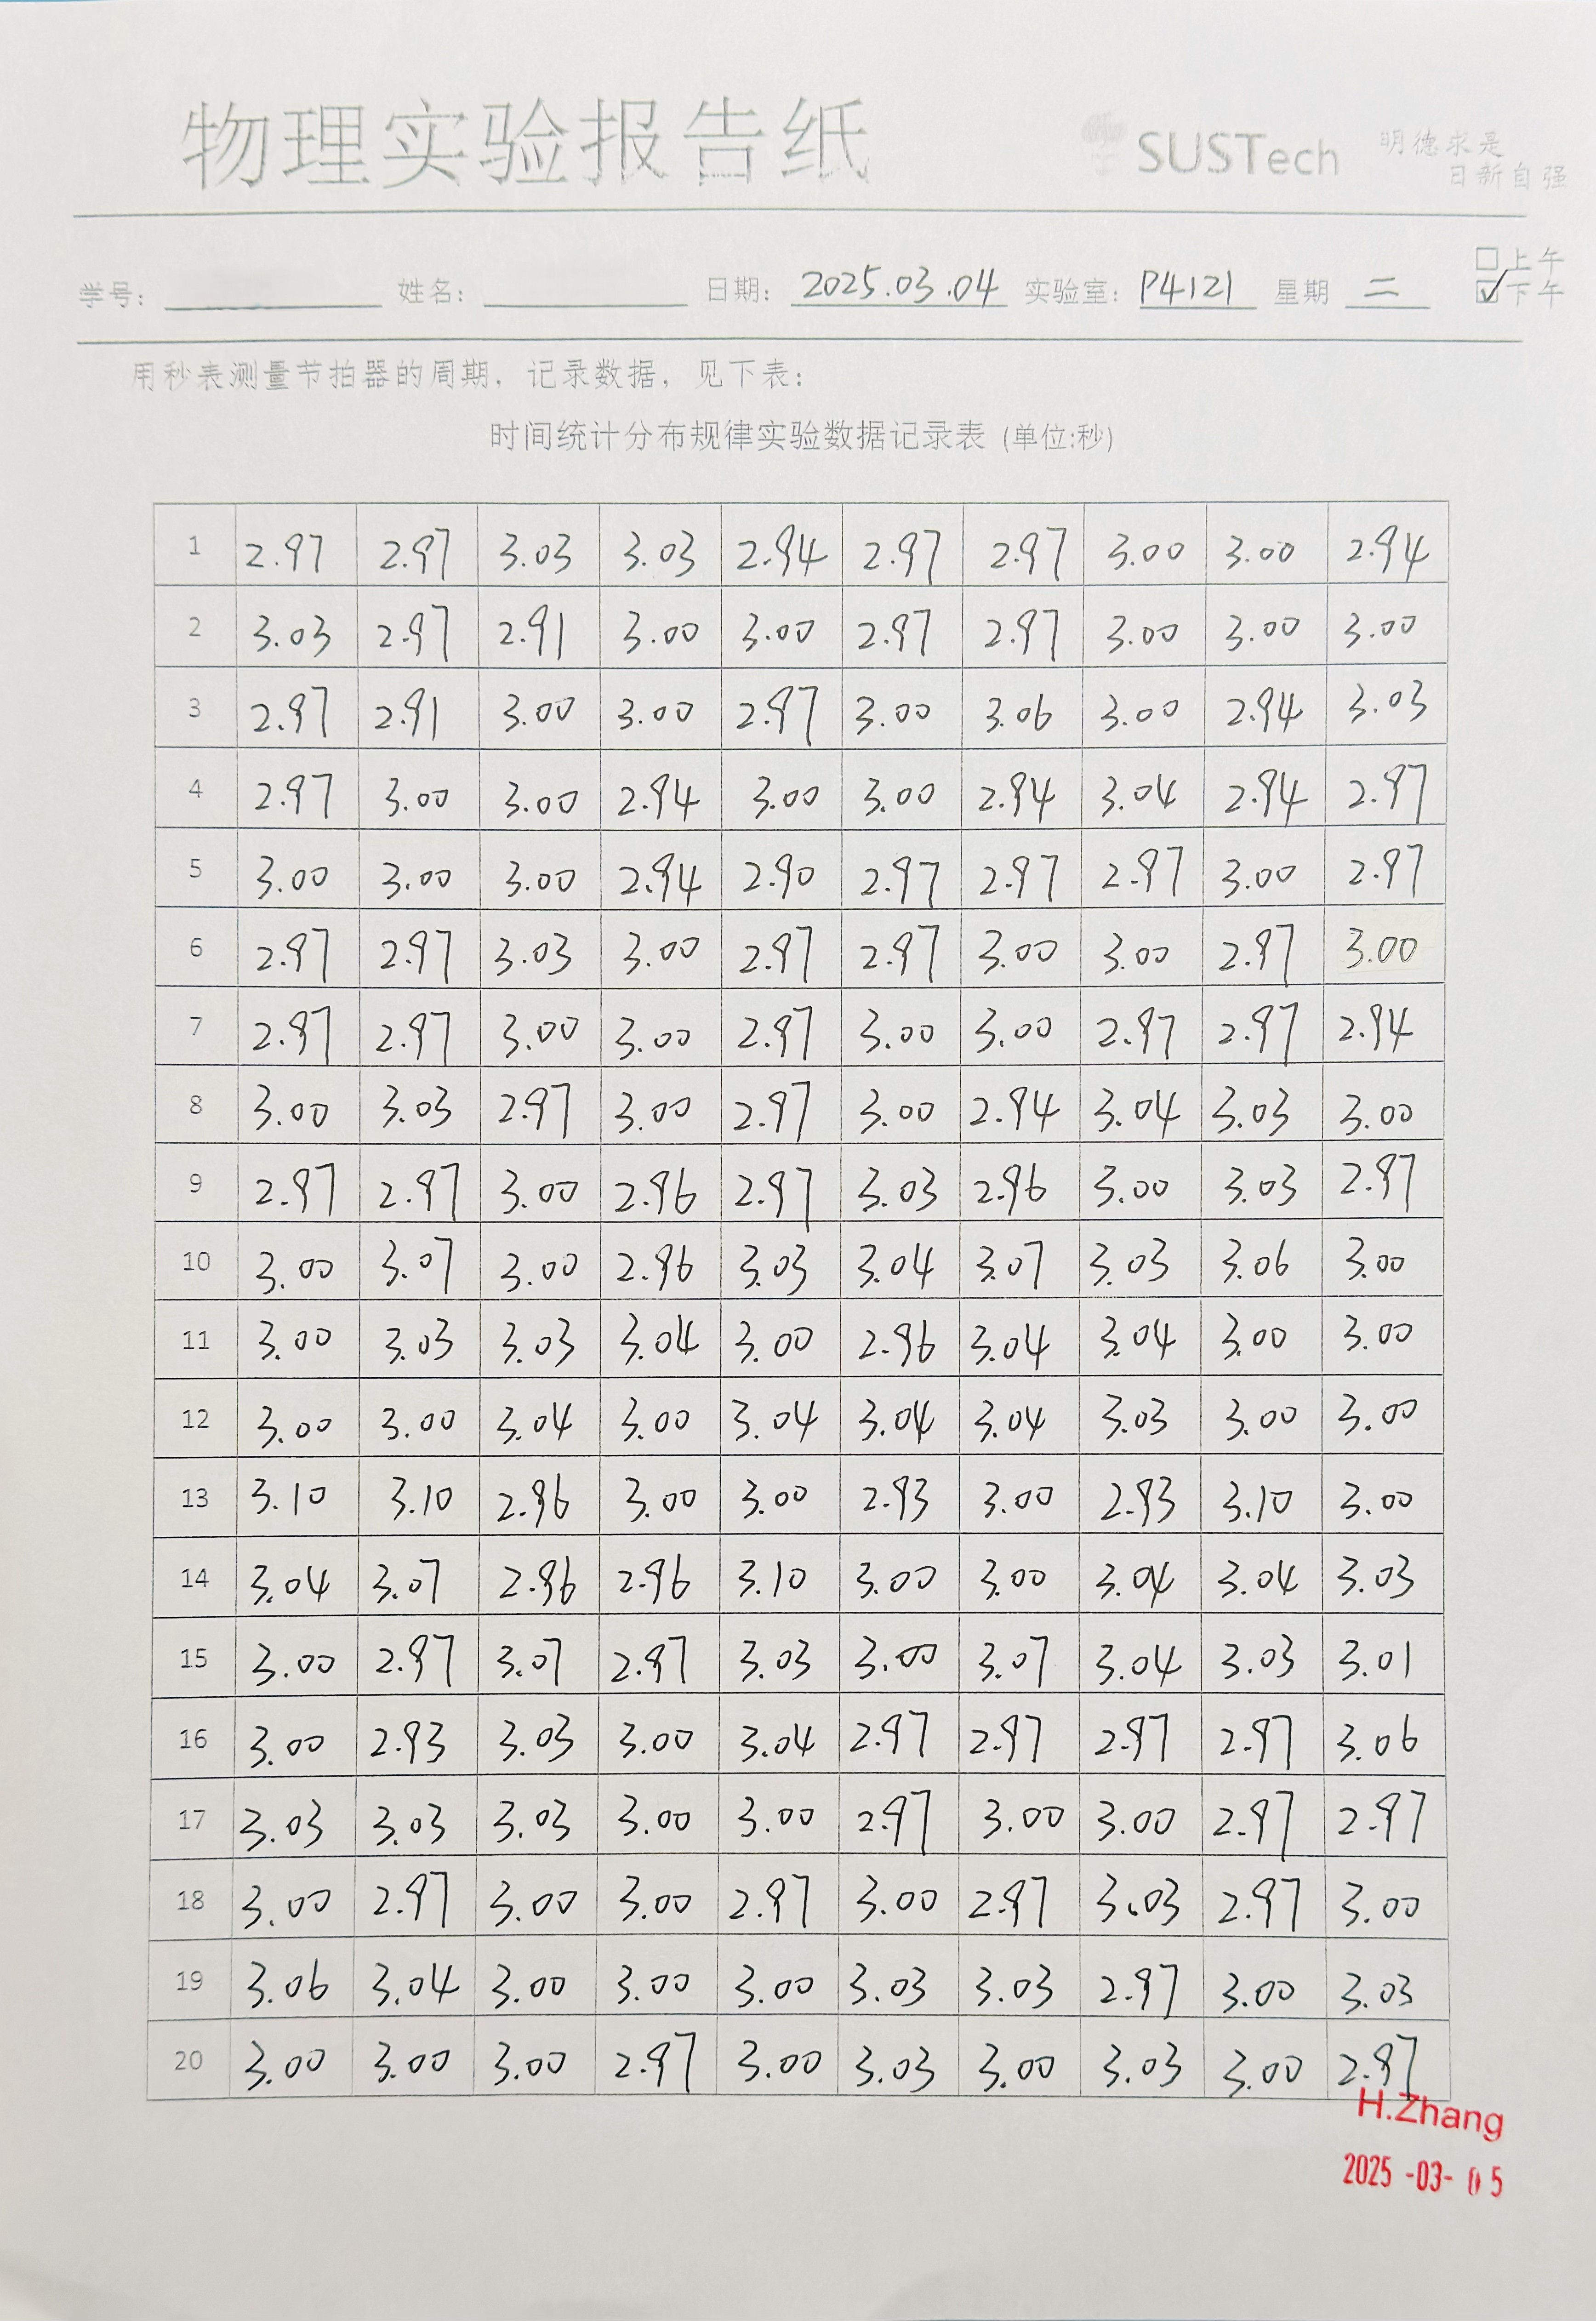 物理实验报告纸
SUSTech 明德求是
日新自强
学号: 姓名: 日期: 2025.03.04 实验室: P4121 星期 二 □上午
☑下午
用秒表测量节拍器的周期，记录数据，见下表：
时间统计分布规律实验数据记录表 (单位:秒)
1 2.97 2.97 3.03 3.03 2.94 2.97 2.97 3.00 3.00 2.94
2 3.03 2.97 2.91 3.00 3.00 2.97 2.97 3.00 3.00 3.00
3 2.97 2.91 3.00 3.00 2.97 3.00 3.06 3.00 2.94 3.03
4 2.97 3.00 3.00 2.94 3.00 3.00 2.94 3.04 2.94 2.97
5 3.00 3.00 3.00 2.94 2.90 2.97 2.97 2.97 3.00 2.97
6 2.97 2.97 3.03 3.00 2.97 2.97 3.00 3.00 2.97 3.00
7 2.97 2.97 3.00 3.00 2.97 3.00 3.00 2.97 2.97 2.94
8 3.00 3.03 2.97 3.00 2.97 3.00 2.94 3.04 3.03 3.00
9 2.97 2.97 3.00 2.96 2.97 3.03 2.96 3.00 3.03 2.97
10 3.00 3.07 3.00 2.96 3.03 3.04 3.07 3.03 3.06 3.00
11 3.00 3.03 3.03 3.04 3.00 2.96 3.04 3.04 3.00 3.00
12 3.00 3.00 3.04 3.00 3.04 3.04 3.04 3.03 3.00 3.00
13 3.10 3.10 2.96 3.00 3.00 2.93 3.00 2.93 3.10 3.00
14 3.04 3.07 2.96 2.96 3.10 3.00 3.00 3.04 3.04 3.03
15 3.00 2.97 3.07 2.97 3.03 3.00 3.07 3.04 3.03 3.01
16 3.00 2.93 3.03 3.00 3.04 2.97 2.97 2.97 2.97 3.06
17 3.03 3.03 3.03 3.00 3.00 2.97 3.00 3.00 2.97 2.97
18 3.00 2.97 3.00 3.00 2.97 3.00 2.97 3.03 2.97 3.00
19 3.06 3.04 3.00 3.00 3.00 3.03 3.03 2.97 3.00 3.03
20 3.00 3.00 3.00 2.97 3.00 3.03 3.00 3.03 3.00 2.97
H.Zhang
2025 -03- 05